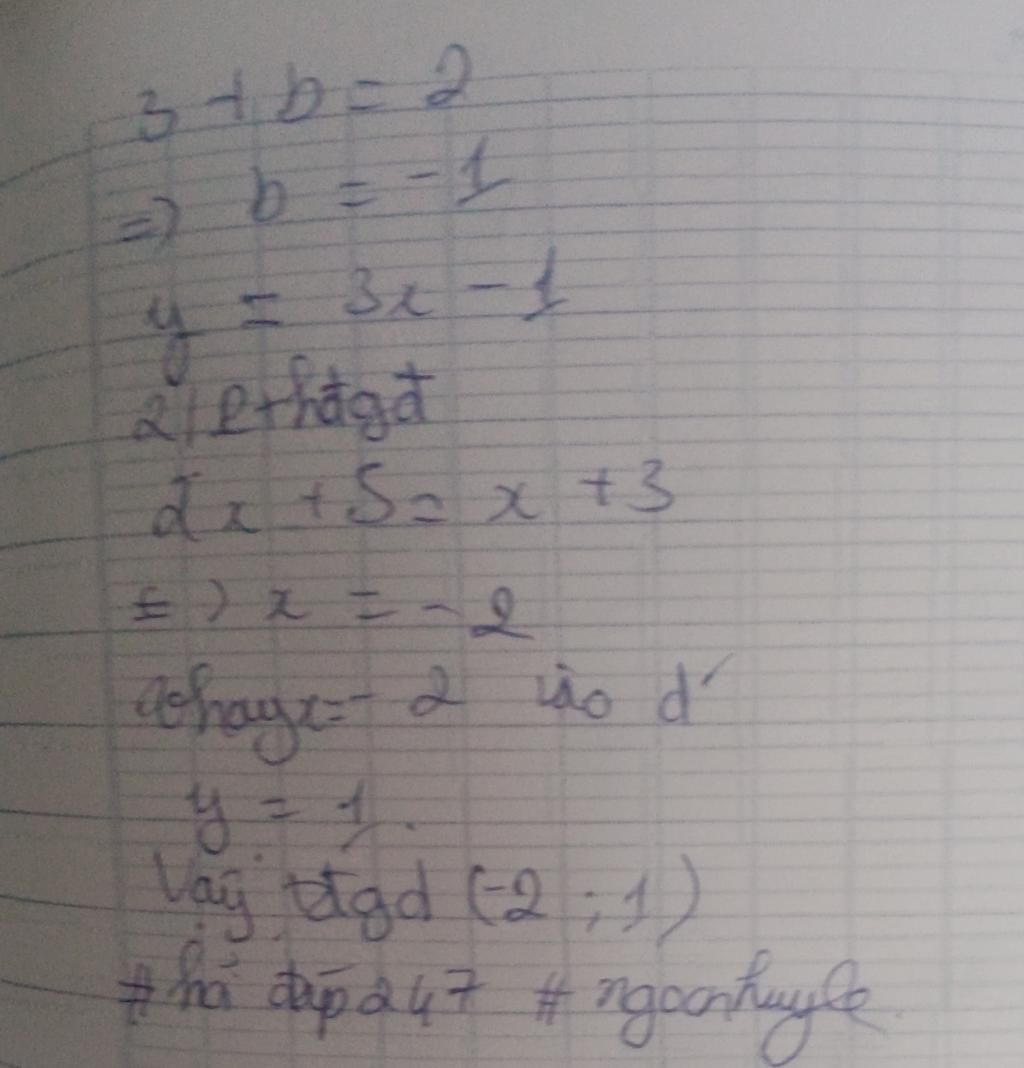 3 + b = 2
=> b = -1
y = 3x - 1
2, Pthđgđ
2x + 5 = x + 3
<=> x = -2
thay x = -2 vào d'
y = 1.
Vậy tđgđ (-2 ; 1)
#hỏi đáp 247 #ngocnhuyle